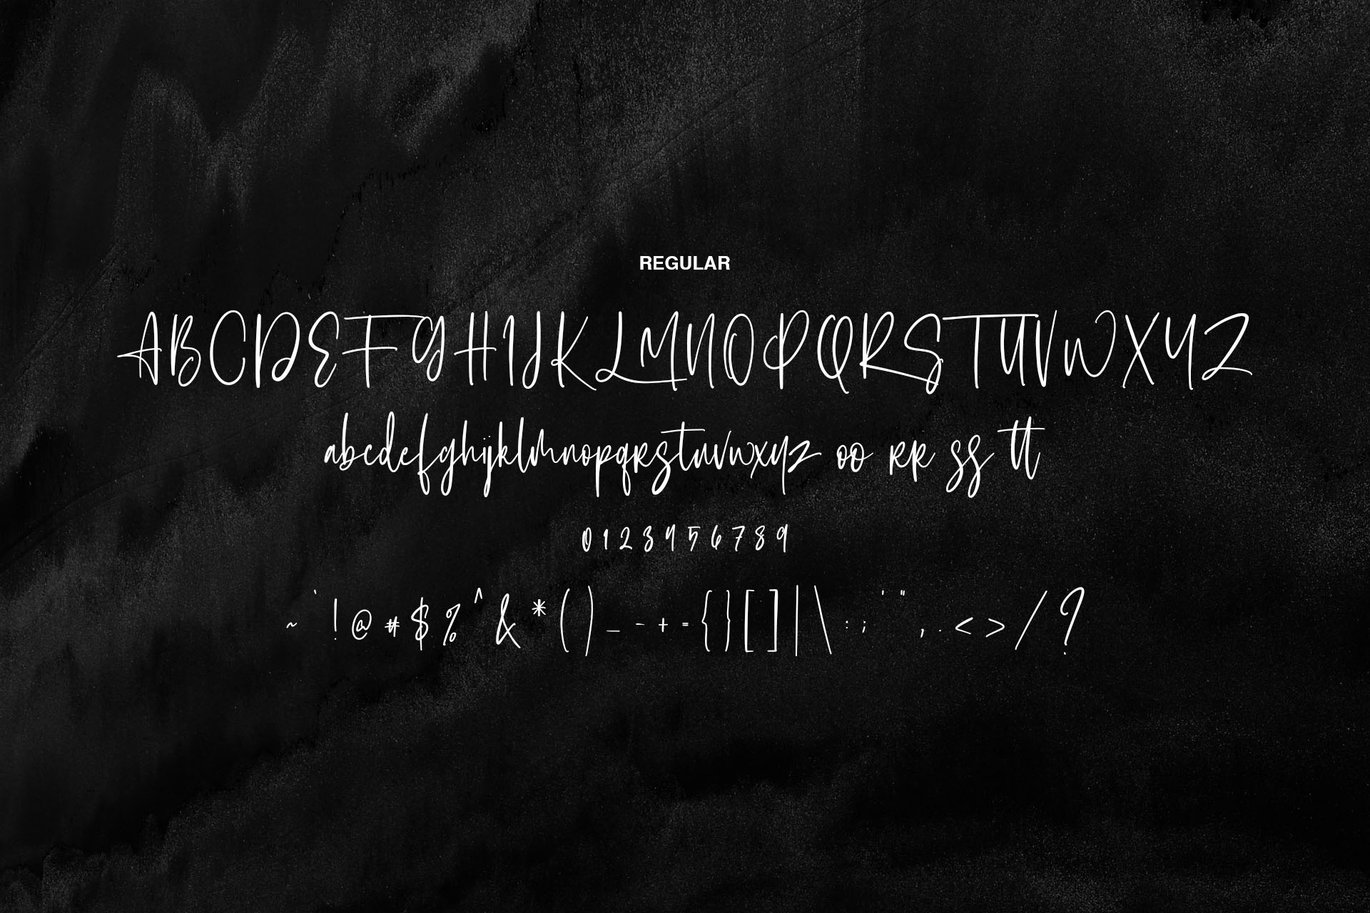 REGULAR
ABCDEFGHIJKLMNOPQRSTUVWXYZ
abcdefghijklmnopqrstuvwxyz oo rr ss tt
0123456789
~ ` ! @ # $ % ^ & * ( ) _ - + = { } [ ] | \ : ; ' " , . < > / ?